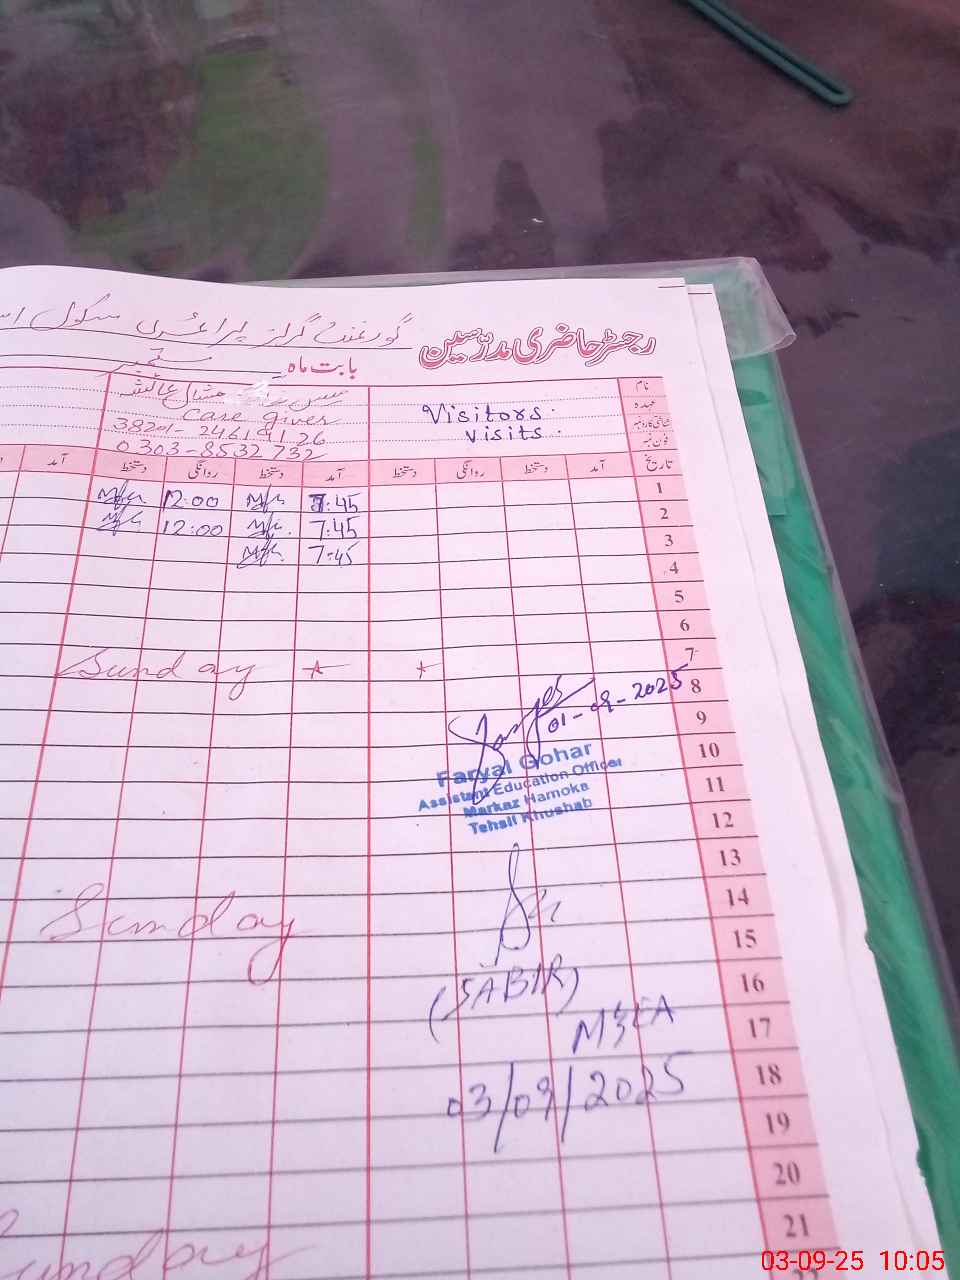 رجسٹر حاضری مدرّسین گورنمنٹ گرلز پرائمری سکول
بابت ماہ ستمبر
نام
عہدہ
شناختی کارڈ نمبر
فون نمبر
Visitors
visits
مشال عائشہ
Care giver
38201-2461
0303-8532732
تاریخ آمد دستخط روانگی دستخط آمد دستخط روانگی دستخط آمد
1 7:45 12:00
2 7:45 12:00
3 7:45
4
5
6
7 Sunday
8
01-09-2025
9
10
Faryal Gohar
11
Assistant Education Officer
Markaz Hamoka
12
Tehsil Khushab
13
14 Sunday
15
16
(SABIR)
17
MEA
18
03/09/2025
19
20
21 Sunday
03-09-25 10:05